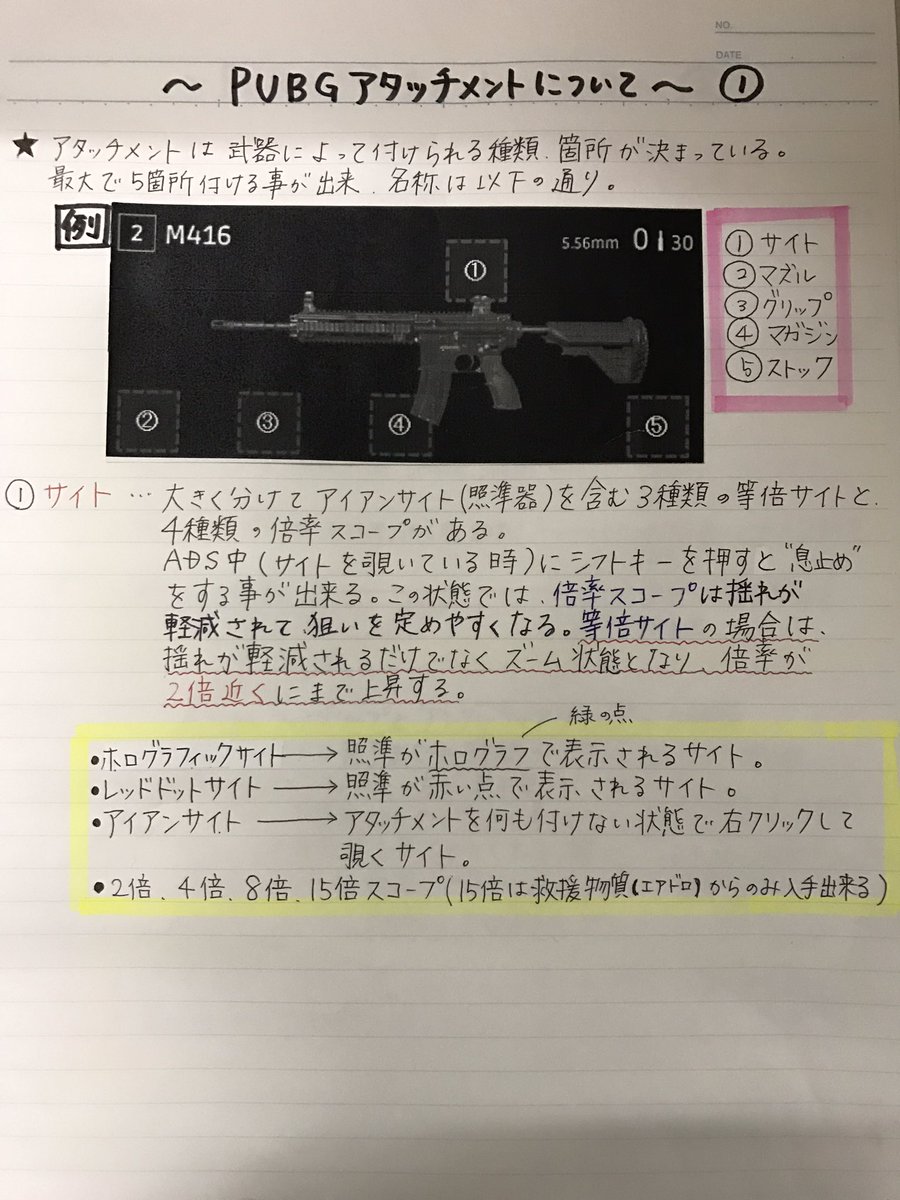 NO.
DATE
～ PUBGアタッチメントについて ～ ①
★ アタッチメントは武器によって付けられる種類、箇所が決まっている。
最大で5箇所付ける事が出来、名称は以下の通り。
例
2 M416
5.56mm 0 | 30
①
②
③
④
⑤
① サイト
② マズル
③ グリップ
④ マガジン
⑤ ストック
① サイト … 大きく分けてアイアンサイト(照準器)を含む3種類の等倍サイトと、
4種類の倍率スコープがある。
ADS中(サイトを覗いている時)にシフトキーを押すと"息止め"
をする事が出来る。この状態では、倍率スコープは揺れが
軽減されて、狙いを定めやすくなる。等倍サイトの場合は、
揺れが軽減されるだけでなくズーム状態となり、倍率が
2倍近くにまで上昇する。
緑の点
•ホログラフィックサイト→照準がホログラフで表示されるサイト。
•レッドドットサイト→照準が赤い点で表示されるサイト。
•アイアンサイト→アタッチメントを何も付けない状態で右クリックして
覗くサイト。
•2倍、4倍、8倍、15倍スコープ(15倍は救援物質(エアドロ)からのみ入手出来る)